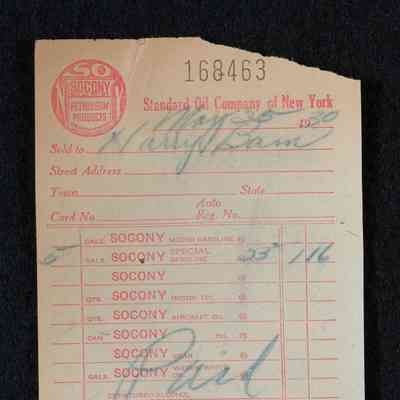 168463
SO
SOCONY
PETROLEUM
PRODUCTS
Standard Oil Company of New York
May 25 1930
Sold to Harry
Street Address
Town State
Card No. Auto Reg. No.
GALS. SOCONY MOTOR GASOLINE @
5 GALS. SOCONY SPECIAL GASOLINE @ 23 1.16
SOCONY
QTS. SOCONY MOTOR OIL @
QTS. SOCONY AIRCRAFT OIL @
CAN SOCONY OIL @
SOCONY GEAR @
GALS. SOCONY @
Paid
DENATURED ALCOHOL